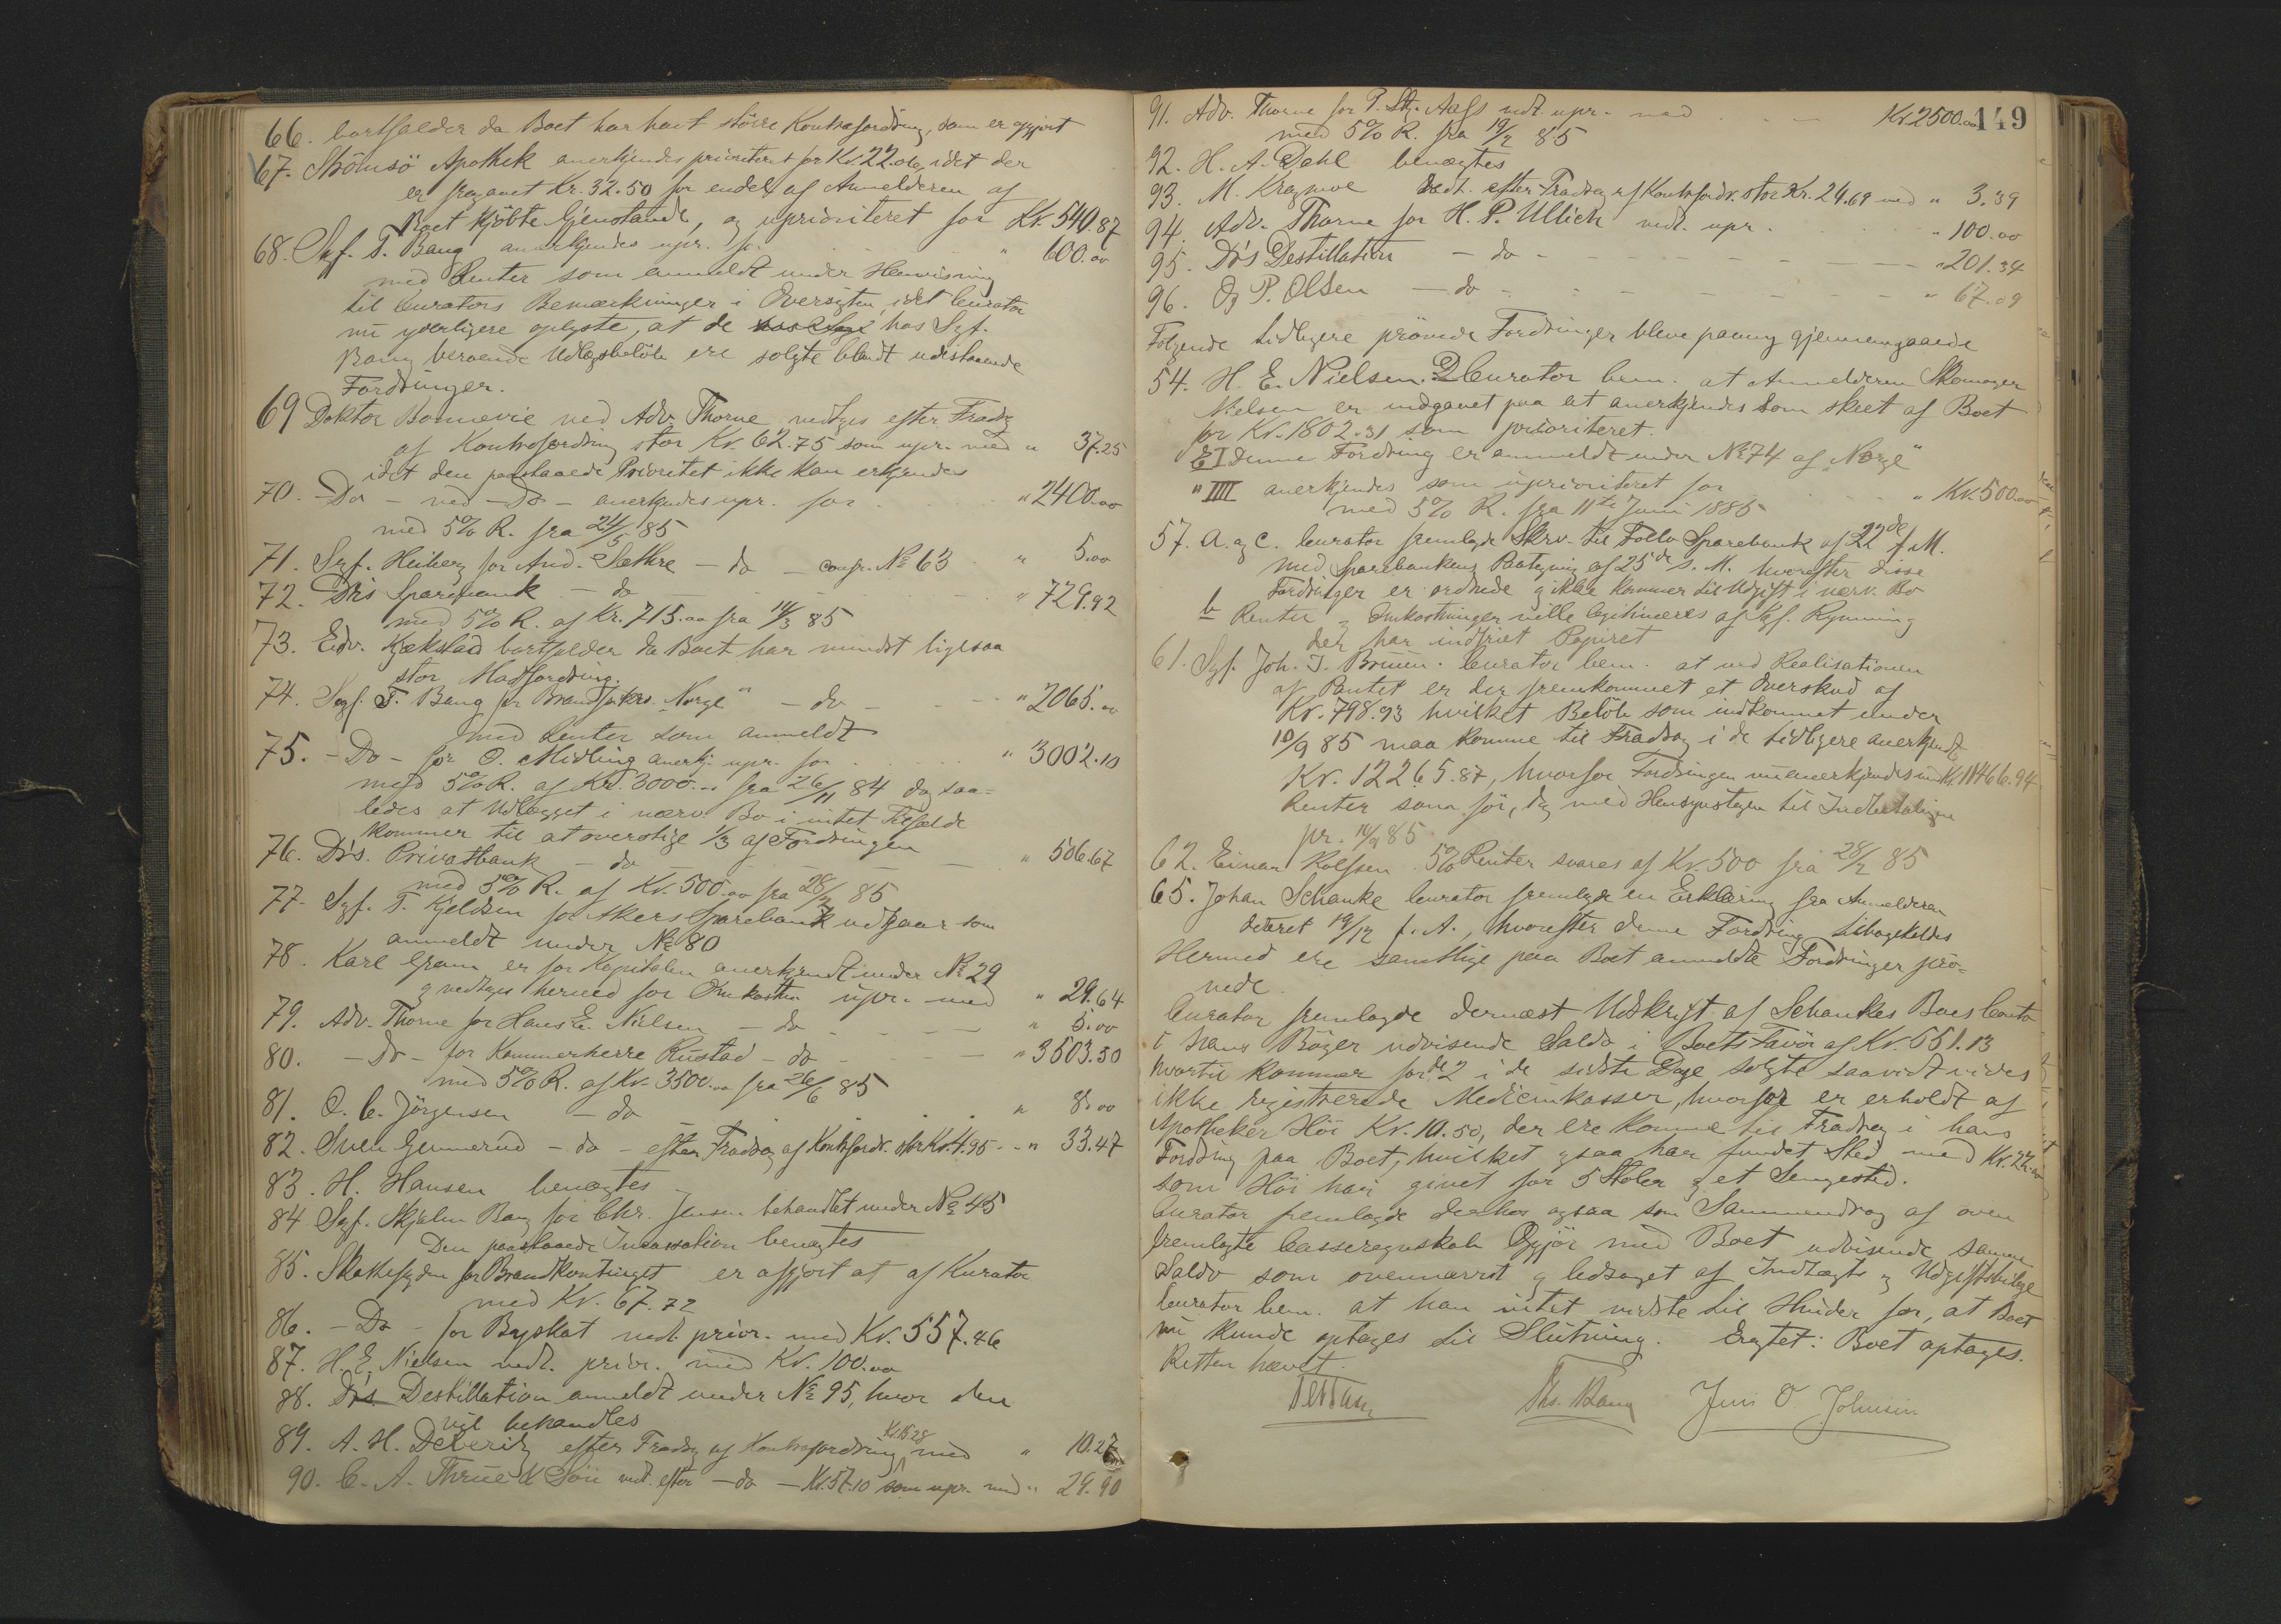 66. bortfalder da Boet har havt större Kontrafordring, som er opgjort
67. Strömsö Apothek anerkjendes prioriteret for Kr. 22.06, idet der
er fragaaet Kr. 32.50 for endel af Anmelderen af
Boet kjöbte Gjenstande, og uprioriteret for Kr. 540.87
68. Sgf. T. Bang anerkjendes upr. for " 600.00
med Renter som anmeldt under Henvisning
til Curators Bemærkninger i Oversigten, idet Curator
nu yderligere oplyste, at de hos Sgf.
Bang beroende Udlægsbelöb ere solgte blandt udestaaende
Fordringer.
69 Doktor Bonnevie ved Adv. Thorne vedtages efter Fradrag
af Kontrafordring stor Kr. 62.75 som upr. med " 37.25
idet den paastaaede Prioritet ikke kan erkjendes
70. - Do - ved - Do - anerkjendes upr. for " 2400.00
med 5% R. fra 24/5 85
71. Sgf. Heiberg for And. Sæthre - do - confr. No 63 " 5.00
72. D's Sparebank - do - " 729.92
med 5% R. af Kr. 715.00 fra 14/3 85
73. Edv. Kjækstad bortfalder da Boet har mindst ligesaa
stor Modfordring.
74. Sgf. T. Bang for Brandforsikrs. "Norge" - do - " 2065.00
med Renter som anmeldt
75. - Do - for O. Midling anerkj. upr. for " 3002.10
med 5% R. af Kr. 3000.- fra 26/11 84 dog saa=
ledes at Udlægget i nærv. Bo i intet Tilfælde
kommer til at overstige 1/3 af Fordringen
76. D's. Privatbank - do - " 506.67
med 5% R. af Kr. 500.00 fra 28/2 85
77. Sgf. T. Kjeldsen for Akers Sparebank udgaar som
anmeldt under No 80
78. Karl Gram er for Kapitalen anerkjendt under No 29
og vedtages herved for Omkostn upr. med " 29.64
79. Adv. Thorne for Hans E. Nielsen - do - " 5.00
80. - Do - for Kammerherre Rustad - do - " 3503.50
med 5% R. af Kr. 3500.00 fra 26/6 85
81. O. C. Jörgensen - do " 8.00
82. Sven Gunnerud - do - efter Fradrag af Kontrafordr. stor Kr. 4.95 - " 33.47
83. H. Hansen benægtes
84 Sgf. Skjelm Bang for Chr. Jensen behandlet under No 45
Den paastaaede Incassation benægtes
85. Skattefogden for Brandkontinget er afgjort at af Kurator
med Kr. 67.72
86. - Do - for Byskat vedt. prior. med Kr. 557.46
87. H. E. Nielsen vedt. prior. med Kr. 100.00
88. D's Destillation anmeldt under No 95, hvor den
vil behandles
89. A. H. Deberitz efter Fradrag af Kontrafordring Kr. 15.28 med " 10.27
90. C. A. Thrue & Sön vedt. efter - do - Kr. 57.10 som upr. med " 29.90
149
91. Adv. Thorne for P. Ltz. Aass vedt. upr. med Kr. 2500.00
med 5% R. fra 19/2 85
92. H. A. Dahl benægtes
93. M. Kragmoe vedt. efter Fradrag af Kontrafordr. stor Kr. 24.69 med " 3.39
94. Adv. Thorne for H. P. Ullich vedt. upr. " 100.00
95. D's Destillation - do - " 201.34
96. Og P. Olsen - do - " 67.09
Fölgende tidligere prövede Fordringer bleve paany gjennemgaaede
54. H. E. Nielsen. D Curator bem. at Anmelderen Skomager
Nielsen er indgaaet paa at anerkjendes som skeet af Boet
for Kr. 1802.31 som prioriteret.
E I Denne Fordring er anmeldt under No 74 af "Norge"
" IIII anerkjendes som uprioriteret for " Kr. 500.00
med 5% R. fra 11te Juni 1885
57. a. og c. Curator fremlagde Skrv. til Follo Sparebank af 22de f. M.
med Sparebankens Paategning af 25de s. M. hvorefter disse
Fordringer er ordnede og ikke kommer til Udgift i nærv. Bo
b Renter og Omkostninger ville legitimeres af Sgf. Rynning
der har indfriet Papiret
61. Sgf. Joh. J. Bruun. Curator bem. at ved Realisationen
af Pantet er der fremkommet et Overskud af
Kr. 798.93 hvilket Belöb som indkommet under
10/9 85 maa komme til Fradrag i de tidligere anerkjendt
Kr. 12265.87, hvorfor Fordringen nu anerkjendes med Kr. 11466.94
Renter som för, dog med Hensyntagen til Indbetalingen
pr. 10/9 85
62. Einar Rolfsen 5% Renter svares af Kr. 500 fra 28/2 85
65. Johan Schanke Curator fremlagde en Erklæring fra Anmelderen
dateret 19/12 f. A., hvorefter denne Fordring tilbagekaldes
Hermed ere samtlige paa Boet anmeldte Fordringer prö=
vede.
Curator fremlagde dernæst Udskrift af Schankes Boes Conto
i hans Böger udvisende Saldo i Boets Favör af Kr. 551.13
hvortil kommer for de 2 i de sidste Dage solgte saavidt vides
ikke registrerede Medicinkasser, hvorfor er erholdt af
Apotheker Höi Kr. 10.50, der ere komne til Fradrag i hans
Fordring paa Boet, hvilket ogsaa har fundet Sted med Kr. 22.00
som Höi har givet for 5 Stoler og et Sengested.
Curator fremlagde derhos ogsaa som Sammendrag af oven
fremlagte Casseregnskab Opgjör med Boet udvisende samme
Saldo som ovennævnt og ledsaget af Indtægts og Udgiftsbilage
Curator bem. at han intet vidste til Hinder for, at Boet
nu kunde optages til Slutning. Eragtet: Boet optages.
Retten hævet.
Ths. Bang Jens O. Johnsen